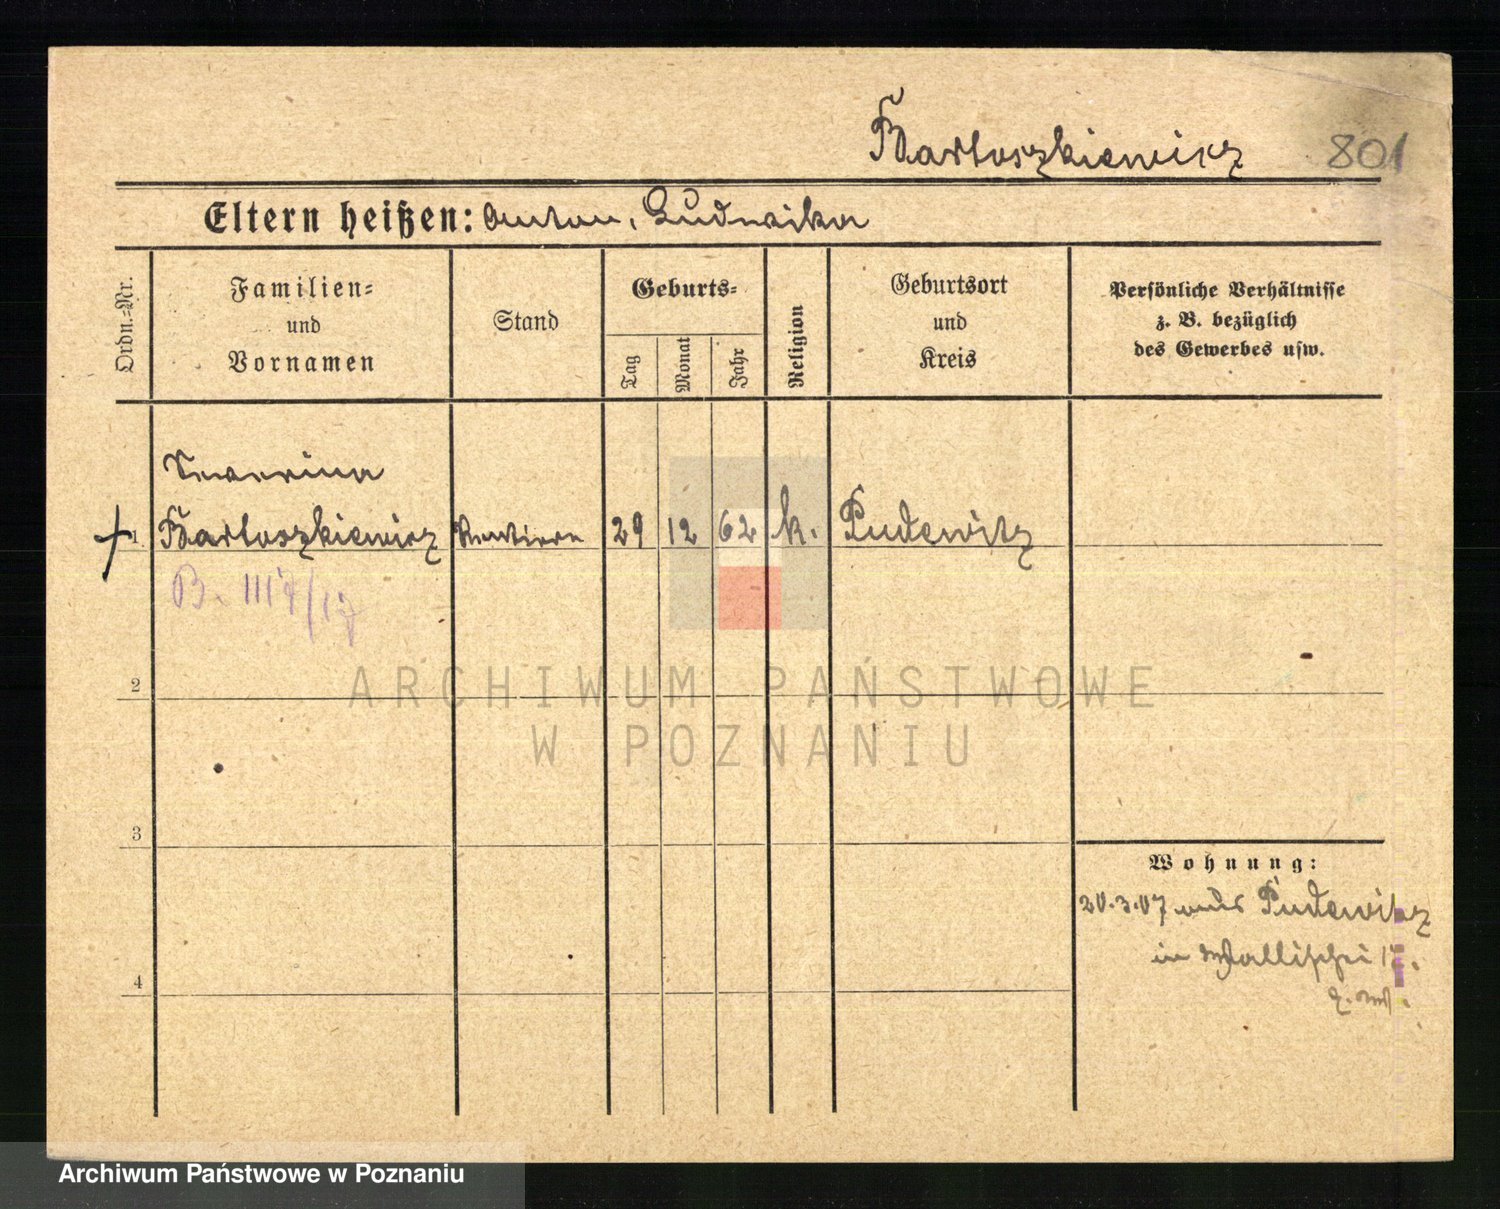 Bartoszkiewicz 801
Eltern heißen: Anton, Ludwika
Ordn.=Nr.
Familien=
und
Vornamen
Stand
Geburts=
Tag
Monat
Jahr
Religion
Geburtsort
und
Kreis
Persönliche Verhältnisse
z. B. bezüglich
des Gewerbes usw.
Severina
1 Bartoszkiewicz Rentiere 29 12 62 k. Pudewitz
B. III
2
ARCHIWUM PAŃSTWOWE
W POZNANIU
3
Wohnung:
20.3.07 aus Pudewitz
in Wallischei
4
Archiwum Państwowe w Poznaniu